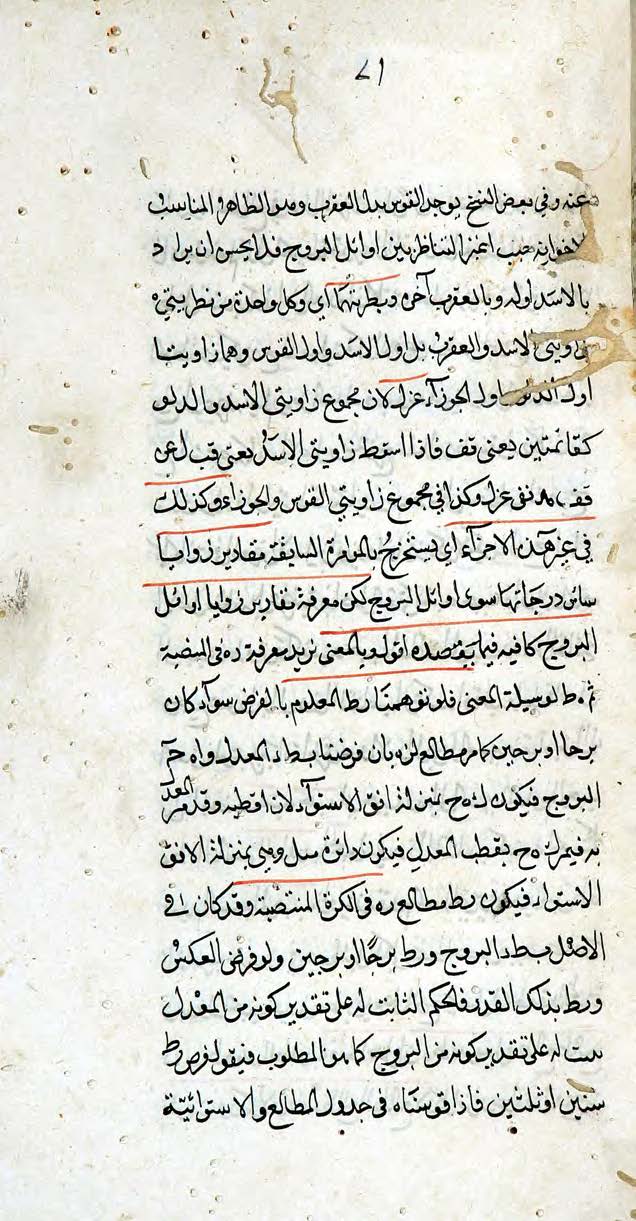 ٧١
عنه وفي بعض النسخ يوجد القوس بدل العقرب وهو الظاهر المناسب
لاخواته اعتبر التناظر بين اوائل البروج فلا يحسن ان يراد
بالاسد اوله وبالعقرب آخره ونظرتهما اي وكل واحدة من نظريتي
زاويتي الاسد والعقرب بل اول الاسد واول القوس وهما زاويتا
اول الدلو واول الجوزآء عزل لان مجموع زاويتي الاسد والدلو
كقائمتين يعني قف فاذا اسقط زاويتي الاسد يعني قب لاعن
قف بقي عزل وكذا في مجموع زاويتي القوس والجوزاء وكذلك
في غير هذه الاجزآء اي يستخرج بالموامرة السابقة مقادير زوايا
سائر درجاتها سوى اوائل البروج لكن معرفة مقادير زوايا اوائل
البروج كافيه فيما يقصده اقول وبالمعنى نريد معرفة ره في
لوسيلة المعنى فلو توهمنا رط المعلوم بالفرض سوآء كان
برجا او برجين كما مر مطالع لره بان فرضنا بطد المعدل واه ح
البروج فيكون له ح بمنزلة افق الاستوآء لان قطبه وقد مر المعدل
به فيمر له ح بقطب المعدل فيكون دائرة ميل وهي بمنزلة الافق
الاستواء فيكون رط مطالع ره في الكرة المنتصبة وقد كان في
الاصل بطد البروج ورط برجًا او برجين ولو فرض العكس
ورط بذلك القدر فالحكم الثابت له على تقدير كونه من المعدل
يثبت له على تقدير كونه من البروج كما هو المطلوب فيقول فرض رط
ستين او ثلثين فاذا قوسناه في جدول المطالع والاستوائية